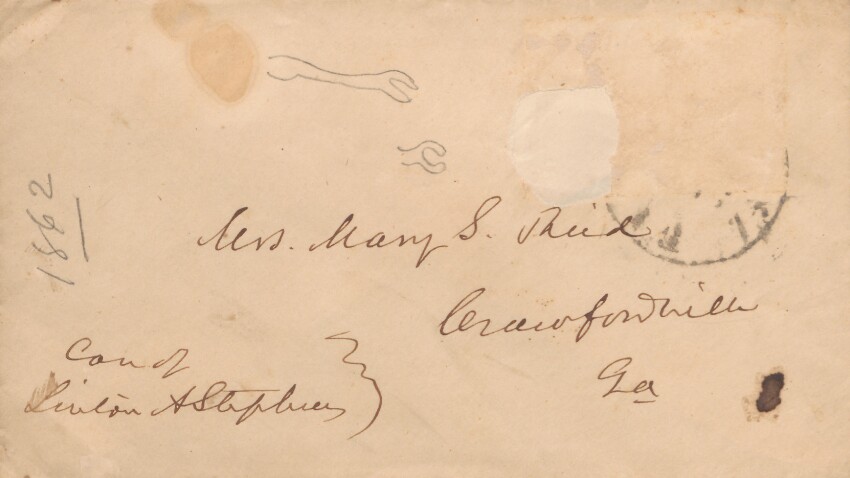 1862
Mrs. Mary S. Reid
Crawfordville
Ga
Care of
Linton A Stephens